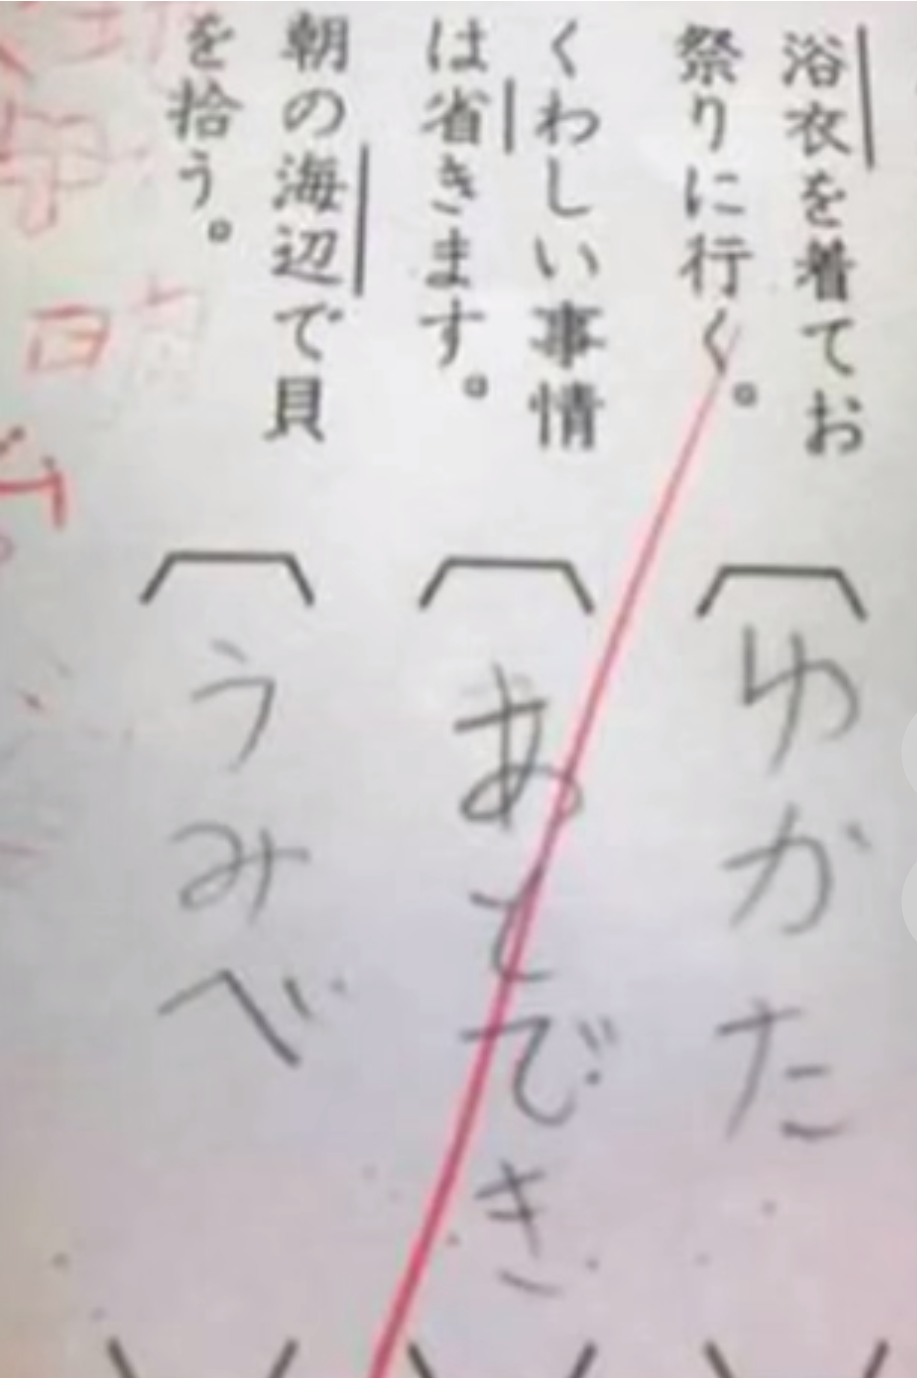 浴衣を着てお
祭りに行く。
ゆかた
くわしい事情
は省きます。
あとでき
朝の海辺で貝
を拾う。
うみべ